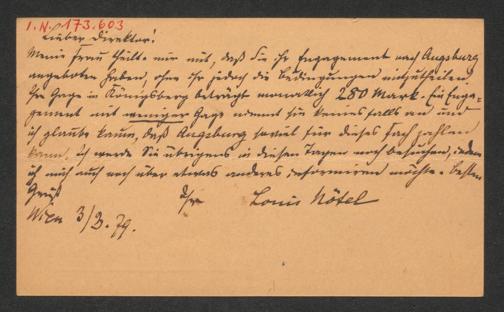 I.N. 173.603
Lieber Direktor!
Meine Frau theilte mir mit, daß Sie ihr Engagement nach Augsburg
angeboten haben, ohne ihr jedoch die Bedingungen mitzutheilen.
Ihre Gage in Königsberg beträgt monatlich 280 Mark. Ein Enga-
gement mit weniger Gage nimmt sie keinesfalls an und
ich glaube kaum, daß Augsburg soviel für dieses Fach zahlen
kann. Ich werde Sie übrigens in diesen Tagen noch besuchen, indem
ich mich auch noch über etwas anderes informiren möchte. Besten
Gruß Ihr Louis Nötel
Wien 3/3. 79.